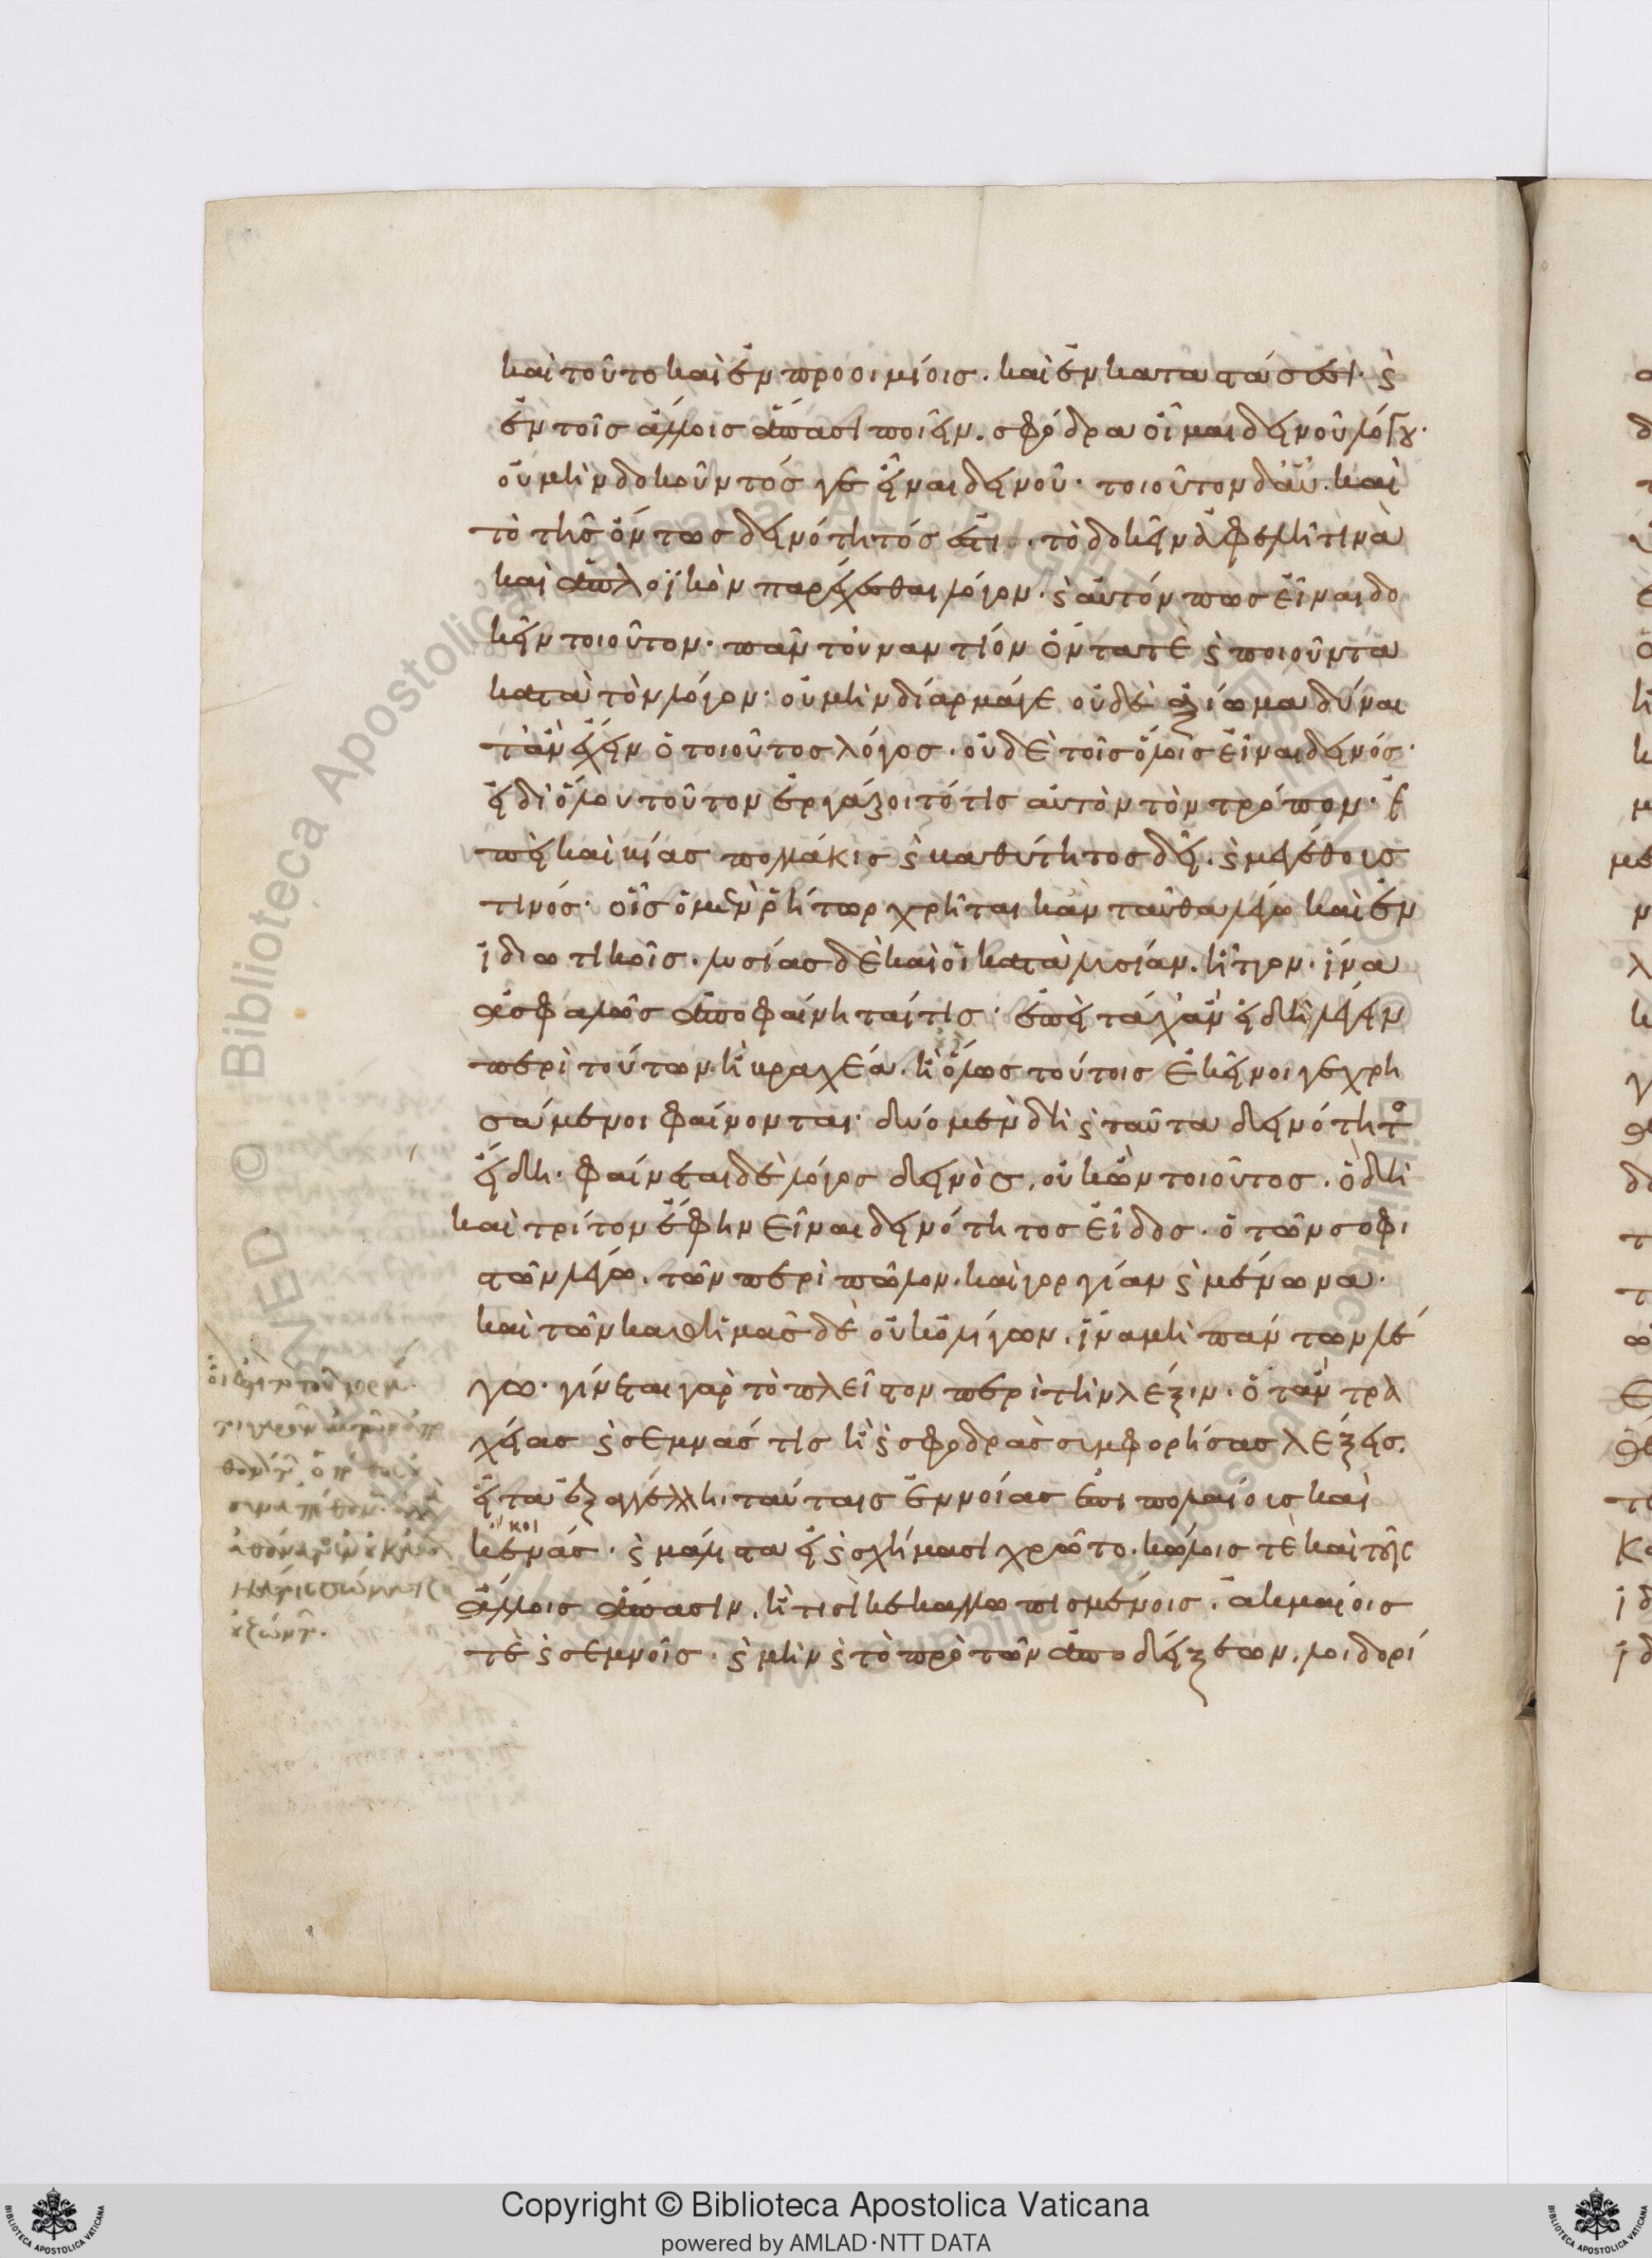 καὶ τοῦτο καὶ ἐν προοιμίοις. καὶ ἐν καταστάσεσι. καὶ
ἐν τοῖς ἄλλοις ἅπασι ποιεῖν. σφόδρα οἶμαι δεινοῦ λόγου.
οὐ μὴν δοκοῦντός γε εἶναι δεινοῦ. τοιοῦτον δ' αὖ. καὶ
τὸ τῆς ὄντως δεινότητός ἐστι. τὸ δοκεῖν ἀφελῆ τινὰ
καὶ ἁπλοϊκὸν παρέχεσθαι λόγον. καὶ αὐτόν πως εἶναι δο
κεῖν τοιοῦτον. πᾶν τοὐναντίον ὄντα τὲ καὶ ποιοῦντα
κατὰ τὸν λόγον. οὐ μὴν δίαρμά γε οὐδὲ ἀξίωμα δύναι
τ' ἂν ἔχειν ὁ τοιοῦτος λόγος. οὐδὲ τοῖς ὅλοις εἶναι δεινός.
εἰ δι' ὅλου τοῦτον ἐργάζοιτό τις αὐτὸν τὸν τρόπον. ἐ
πεὶ καὶ βίας πολλάκις καὶ βαθύτητος δεῖ. καὶ μεγέθους
τινός. οἷς ὁ μὲν ῥήτωρ χρῆται κἀνταῦθα λέγω καὶ ἐν
ἰδιωτικοῖς. λυσίας δὲ καὶ οἱ κατὰ λυσίαν. ἧττον. ἵνα
ἀσφαλῶς ἀποφαίνηταί τις. ἐπεὶ τάχ' ἂν εἰ δὴ λέγειν
περὶ τούτων. ἢ βραχέα. ἢ ὅλως τούτοις ἐκεῖνοί γε χρη
σάμενοι φαίνονται. δύο μὲν δὴ καὶ ταῦτα δεινότητος
εἴδη. φαίνεται δὲ λόγος δεινὸς, οὐκ ὢν τοιοῦτος. ὃ δὴ
καὶ τρίτον ἔφην εἶναι δεινότητος εἶδος. ὁ τῶν σοφι
στῶν λέγω. τῶν περὶ πῶλον. καὶ γοργίαν καὶ μένωνα.
καὶ τῶν καθ' ἡμᾶς δὲ οὐκ ὀλίγων. ἵνα μὴ πάντων λέ
γω. γίνεται γὰρ τὸ πλεῖστον περὶ τὴν λέξιν. ὅταν τρα
χείας καὶ σεμνάς τις ἢ καὶ σφοδρὰς συμφορήσας λέξεις.
εἶτα ἐξαγγέλλη. ταύταις ἐννοίας ἐπιπολαίους καὶ
κοι
κενάς. καὶ μάλιστα εἰ καὶ σχήμασι χρῶτο. κώλοις τὲ καὶ τοῖς
ἄλλοις ἅπασιν. ἤ τισι κεκαλλωπισμένοις. ἀκμαίοις
τὲ καὶ σεμνοῖς. καὶ μὴν καὶ τὸ πρὸ τῶν ἀποδείξεων. λοιδορί